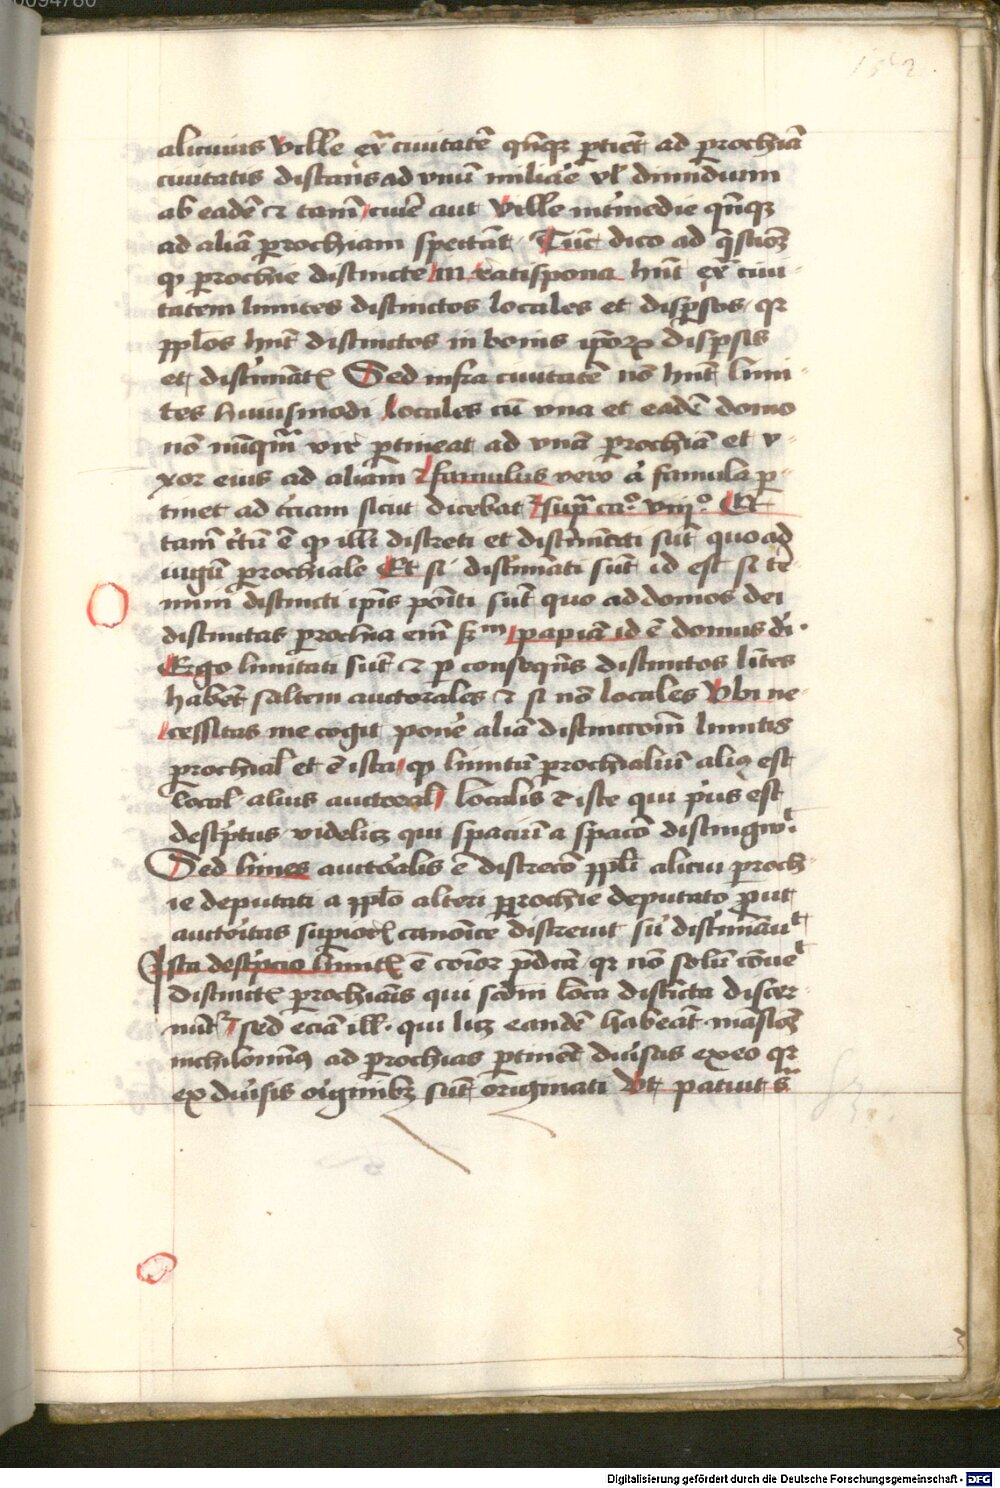 152.
alicuius ville ext̄ ciuitatē qn̄qꝫ ptīet ad prochiā
ciuitatis distans ad vnū miliaē vl̓ dimidium
ab eadē ⁊ tam̄ ciues aut ville int̓medie qn̄qꝫ
ad aliā prochiam spectāt Tūc dico ad q̄stioꝫ
ꝙ prochie distincte in ratispona hn̄t ext̄ ciui-
tatem limites distinctos locales et disꝑsos qr
ppl̓os hn̄t distinctos in bonis ip̄orꝝ disꝑsis
et disc̓minatꝭ Sed infra ciuitatē nō hn̄t limi-
tes huiusmodi locales cū vna et eadē domo
nō nūqm̄ vir ꝑtineat ad vnā prochiā et v-
xor eius ad aliam ⁊ famulus vero aut famula ꝑ-
tinet ad t̓ciam sicut dicebat᷑ supͣ caº viijº Et
tam̄ c̓tū ē ꝙ illi discreti et disc̓minati sūt quo ad
iugū prochiale Et si disc̓minati sūt id est si t̓-
mini distincti ip̄is poīti sūt quo ad domos dei
distinctas prochia em̄ scd̄m papiā id ē domus di.
Ergo limitati sūt ⁊ ꝑ consequēs distinctos līites
habēt saltem auctorales ⁊ si nō locales Vbi ne-
cessitas me cogit pone̓ aliā distinctoēm limitis
prochial̓ et ē ista ꝙ limitū prochialiū aliꝰ est
local̓ alius auctoral̓ Localis ē iste qui pͥus est
descͥptus videlicꝫ qui spaciū a spacō distingwit
Sed limes auctoralis ē discreco̅ ppl̓i alicui proch-
ie deputati a ppl̓o alteri prochie deputato prout
auctoͥtas suꝑiorꝭ canonice discreuit seu disc̓minauit
Ista descͥpcio limitꝭ ē coīor p̄dc̄a qr nō solū cōuēit
distinctꝭ prochianis qui scd̄m loca distīcta discer-
nūt᷑ sed eciam ill̓ qui licꝫ eandē habeāt māsioꝫ
nichilominꝰ ad prochias ꝑtinēt diu̓sas ex eo qr
ex diu̓sis oͥiginibꝫ sūt originati Vt patuit sͣ
Digitalisierung gefördert durch die Deutsche Forschungsgemeinschaft - DFG